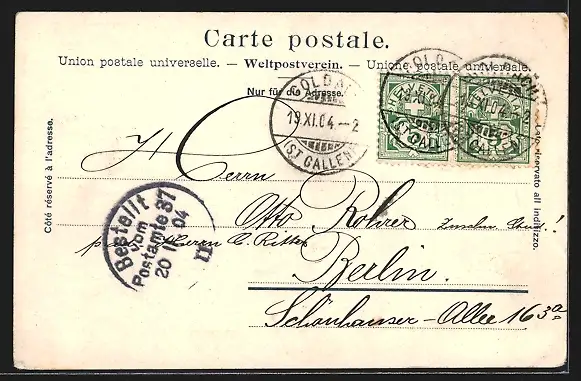 Carte postale.
Union postale universelle. — Weltpostverein. — Unione postale universale.
Nur für die Adresse.
GOLDACH
19.XI.04.–2
(ST GALLEN)
HELVETIA HELVETIA
5 5
Côté réservé à l'adresse.
Lato riservato all indirizzo.
Herrn
Otto Rohrer
pr. Herrn C. Ritter
Berlin.
Schönhauser-Allee 163a
Bestellt
vom
Postamte 37
20 04